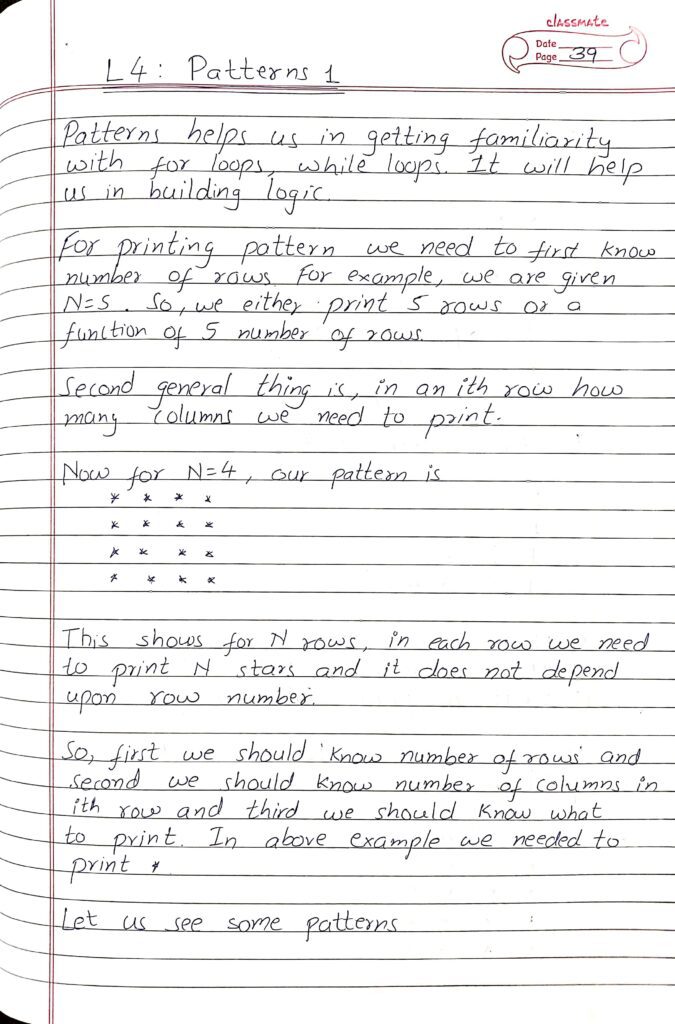 classmate
Date
Page 39
L4: Patterns 1
Patterns helps us in getting familiarity
with for loops, while loops. It will help
us in building logic.
For printing pattern we need to first know
number of rows. For example, we are given
N=5. So, we either print 5 rows or a
function of 5 number of rows.
Second general thing is, in an ith row how
many columns we need to print.
Now for N=4, our pattern is
* * * *
* * * *
* * * *
* * * *
This shows for N rows, in each row we need
to print N stars and it does not depend
upon row number.
So, first we should know number of rows and
second we should know number of columns in
ith row and third we should know what
to print. In above example we needed to
print *
Let us see some patterns